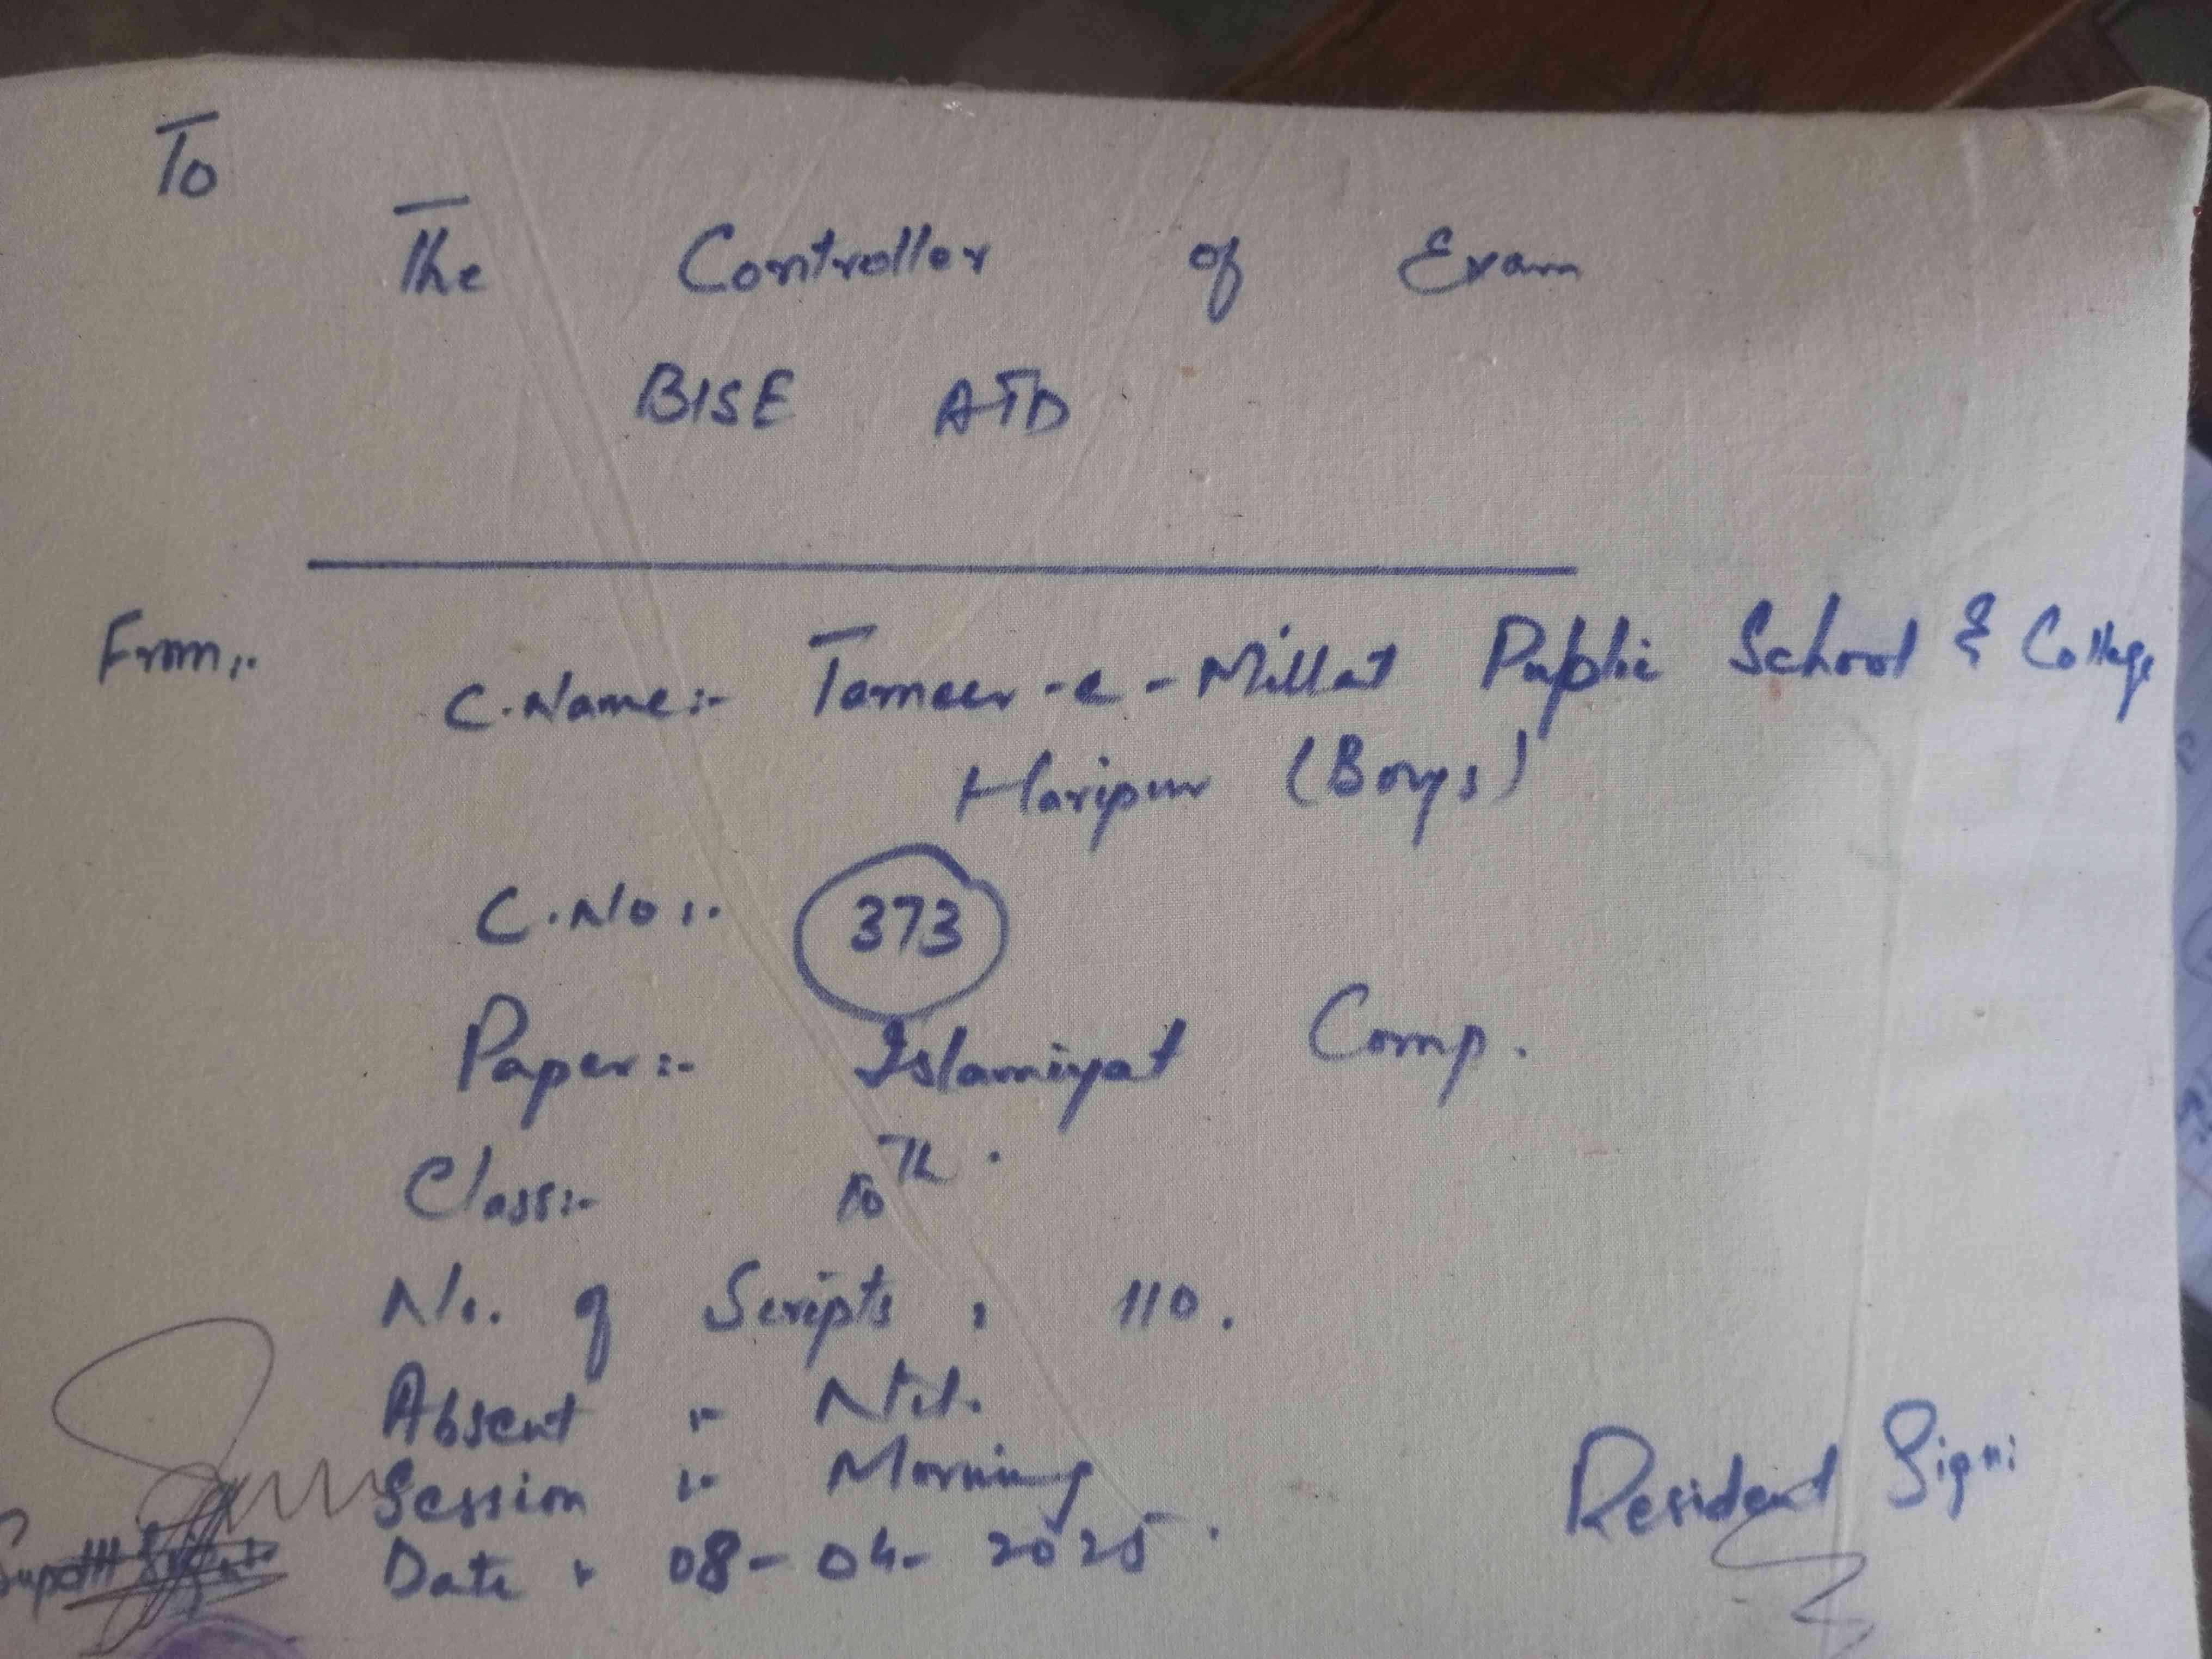 To
The Controller of Exam
BISE ATD
From:-
C.Name:- Tameer-e-Millat Public School & College
Haripur (Boys)
C.No:- 373
Paper:- Islamiyat Comp.
Class:- 10th.
No. of Scripts : 110.
Absent :- Nil.
Session :- Morning
Date :- 08-04-2025.
Resident Sign: